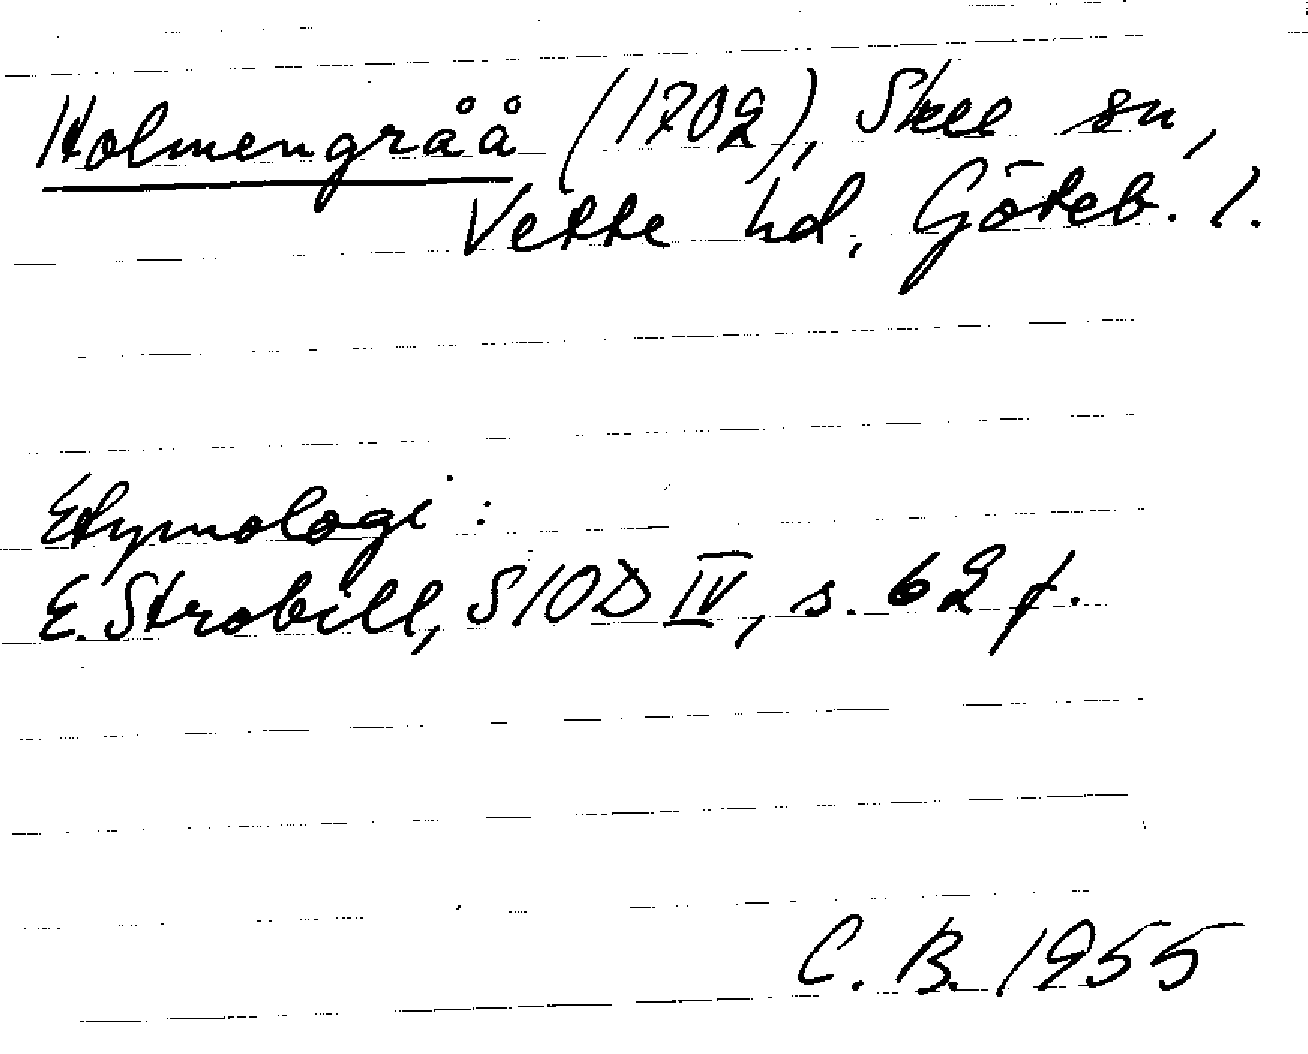 Holmengråå (1702), Skee sn,
Vette hd, Göteb. l.
Etymologi:
E. Strobill, SIOD IV, s. 62 f.
C. B. 1955